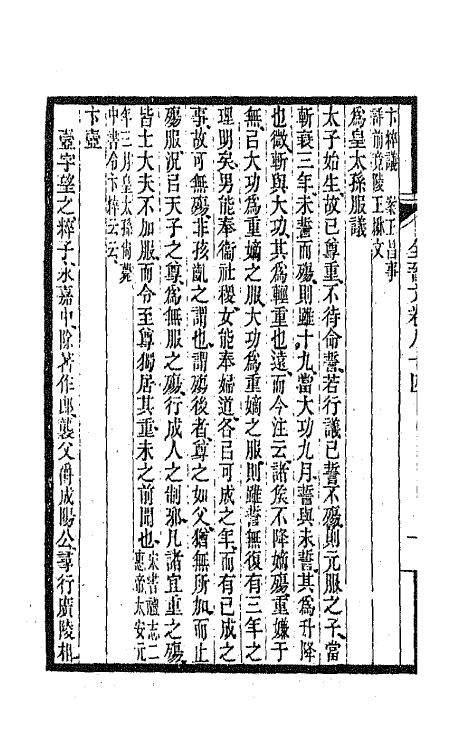 卞粹議 案王昌事
詳前竟陵王楙文
爲皇太孫服議
太子始生故已尊重不待命誓若行議已誓不殤則元服之子當
斬衰三年未誓而殤則雖十九當大功九月誓與未誓其爲升降
也微斬與大功其爲輕重也遠而今注云諸矦不降嫡殤重嫌于
無㠯大功爲重嫡之服大功爲重嫡之服則雖誓無復有三年之
理明矣男能奉衞社稷女能奉婦道各㠯可成之年而有已成之
事故可無殤非孩齓之謂也謂殤後者尊之如父猶無所加而止
殤服況㠯天子之尊爲無服之殤行成人之制邪凡諸宜重之殤
皆士大夫不加服而令至尊獨居其重未之前聞也 宋書禮志二惠帝太安元
年三月皇太孫尙薨
中書令卞粹云云
卞壼
壼字望之粹子永嘉中除著作郎襲父爵成陽公尋行廣陵相
全晉文卷八十四
一